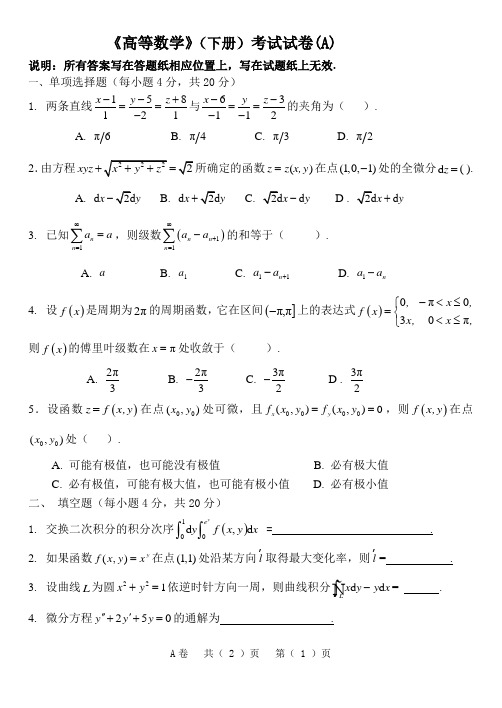 《高等数学》（下册）考试试卷(A)
说明：所有答案写在答题纸相应位置上，写在试题纸上无效.
一、单项选择题（每小题4分，共20分）
1. 两条直线 (x−1)/1 = (y−5)/(−2) = (z+8)/1 与 (x−6)/(−1) = y/(−1) = (z−3)/2 的夹角为（ ）.
A. π/6 B. π/4 C. π/3 D. π/2
2．由方程 xyz + √(x²+y²+z²) = √2 所确定的函数 z = z(x, y) 在点 (1,0,−1) 处的全微分 dz = ( ).
A. dx − √2dy B. dx + √2dy C. √2dx − dy D . √2dx + dy
3. 已知 ∑_{n=1}^{∞} aₙ = a，则级数 ∑_{n=1}^{∞} (aₙ − aₙ₊₁) 的和等于（ ）.
A. a B. a₁ C. a₁ − aₙ₊₁ D. a₁ − aₙ
4. 设 f(x) 是周期为 2π 的周期函数，它在区间 (−π,π] 上的表达式 f(x) = { 0, −π < x ≤ 0, 3x, 0 < x ≤ π,
则 f(x) 的傅里叶级数在 x = π 处收敛于（ ）.
A. 2π/3 B. −2π/3 C. −3π/2 D . 3π/2
5．设函数 z = f(x, y) 在点 (x₀, y₀) 处可微，且 fₓ(x₀, y₀) = f_y(x₀, y₀) = 0，则 f(x, y) 在点
(x₀, y₀) 处（ ）.
A. 可能有极值，也可能没有极值 B. 必有极大值
C. 必有极值，可能有极大值，也可能有极小值 D. 必有极小值
二、 填空题（每小题4分，共20分）
1. 交换二次积分的积分次序 ∫₀¹ dy ∫₀^{e^y} f(x, y)dx = .
2. 如果函数 f(x, y) = x^y 在点 (1,1) 处沿某方向 l 取得最大变化率，则 l = .
3. 设曲线 L 为圆 x² + y² = 1 依逆时针方向一周，则曲线积分 ∮_L xdy − ydx = .
4. 微分方程 y″ + 2y′ + 5y = 0 的通解为 .
A卷 共（ 2 ）页 第（ 1 ）页